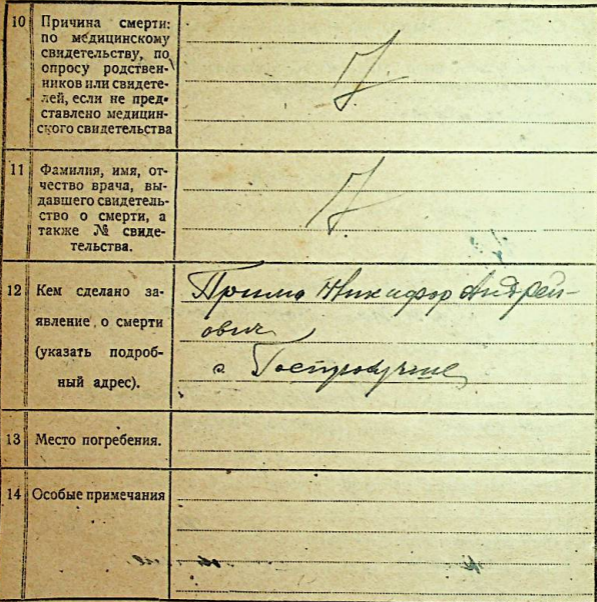 10 Причина смерти:
по медицинскому
свидетельству, по
опросу родствен-
ников или свидете-
лей, если не пред-
ставлено медицин-
ского свидетельства
11 Фамилия, имя, от-
чество врача, вы-
давшего свидетель-
ство о смерти, а
также № свиде-
тельства.
12 Кем сделано за-
явление о смерти
(указать подроб-
ный адрес).
Прима Никифор Андрей-
ович
13 Место погребения.
14 Особые примечания